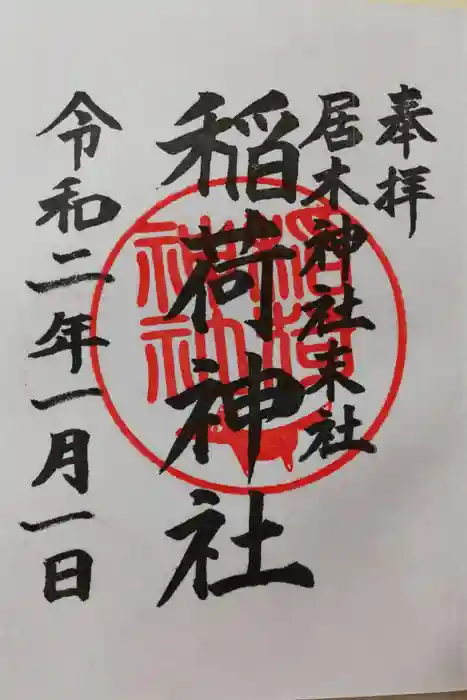 奉拝
居木神社末社
稲荷神社
令和二年一月一日
稲荷
神社